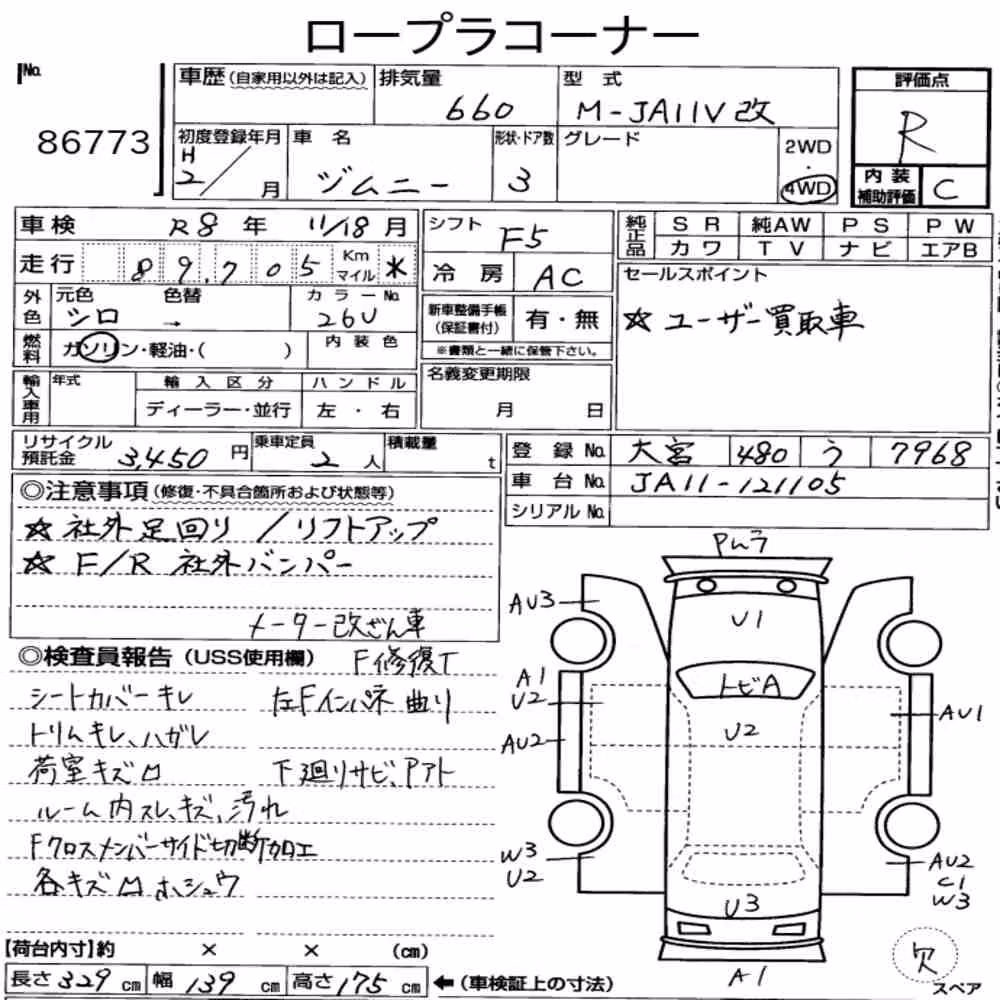 ロープラコーナー
No. 86773
車歴(自家用以外は記入)
排気量 660
型式 M-JA11V改
評価点 R
初度登録年月 H2/ 月
車名 ジムニー
形状・ドア数 3
グレード
2WD・4WD
内装補助評価 C
車検 R8年 11/18月
シフト F5
純正品 SR 純AW PS PW
カワ TV ナビ エアB
走行 89,705 Km マイル *
冷房 AC
セールスポイント
☆ユーザー買取車
外色 元色 シロ → 色替
カラーNo. 26U
新車整備手帳(保証書付) 有・無
※書類と一緒に保管下さい。
燃料 ガソリン・軽油・( )
内装色
輸入車用 年式 輸入区分 ハンドル
ディーラー・並行 左・右
名義変更期限
月 日
リサイクル預託金 3,450円
乗車定員 2人
積載量 t
登録No. 大宮 480 う 7968
車台No. JA11-121105
シリアルNo.
◎注意事項(修復・不具合箇所および状態等)
☆社外足回り/リフトアップ
☆F/R 社外バンパー
メーター改ざん車
◎検査員報告(USS使用欄) F修復T
シートカバーキレ 左Fインパネ曲り
トリムキレ、ハガレ
荷室キズ凹 下廻りサビ、Pアト
ルーム内スレ、キズ、汚れ
Fクロスメンバーサイド切断加工
各キズ凹ホシュウ
AU3
U1
A1
U2
トビA
U2
AU2
AU1
W3
U2
AU2
C1
W3
U3
A1
欠
スペア
【荷台内寸】約 × × (cm)
長さ329cm 幅139cm 高さ175cm ←(車検証上の寸法)